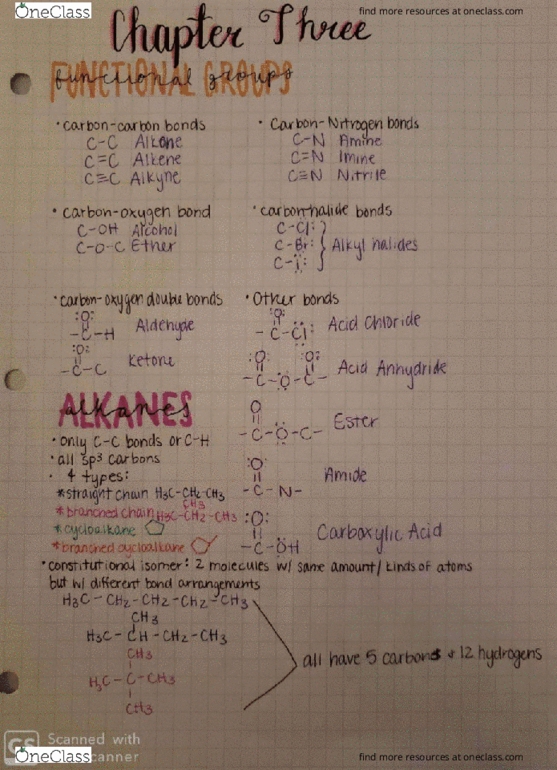 OneClass
find more resources at oneclass.com
Chapter Three
FUNCTIONAL GROUPS
functional groups
• carbon-carbon bonds
C-C Alkane
C=C Alkene
C≡C Alkyne
• Carbon-Nitrogen bonds
C-N Amine
C=N Imine
C≡N Nitrile
• carbon-oxygen bond
C-OH Alcohol
C-O-C Ether
• carbon-halide bonds
C-Cl:
C-Br: } Alkyl halides
C-I:
• carbon-oxygen double bonds
:O:
-C-H Aldehyde
:O:
-C-C Ketone
• Other bonds
:O:
-C-Cl: Acid Chloride
:O: :O:
-C-O-C- Acid Anhydride
O
-C-O-C- Ester
:O:
-C-N- Amide
:O:
-C-OH Carboxylic Acid
ALKANES
alkanes
• only C-C bonds or C-H
• all sp³ carbons
• 4 types:
*straight chain H₃C-CH₂-CH₃
CH₃
*branched chain H₃C-CH₂-CH₃
*cycloalkane
*branched cycloalkane
• constitutional isomer: 2 molecules w/ same amount/kinds of atoms
but w/ different bond arrangements
H₃C-CH₂-CH₂-CH₂-CH₃
CH₃
H₃C-CH-CH₂-CH₃
CH₃
H₃C-C-CH₃
CH₃
all have 5 carbons + 12 hydrogens
CS Scanned with
OneClass
canner
find more resources at oneclass.com